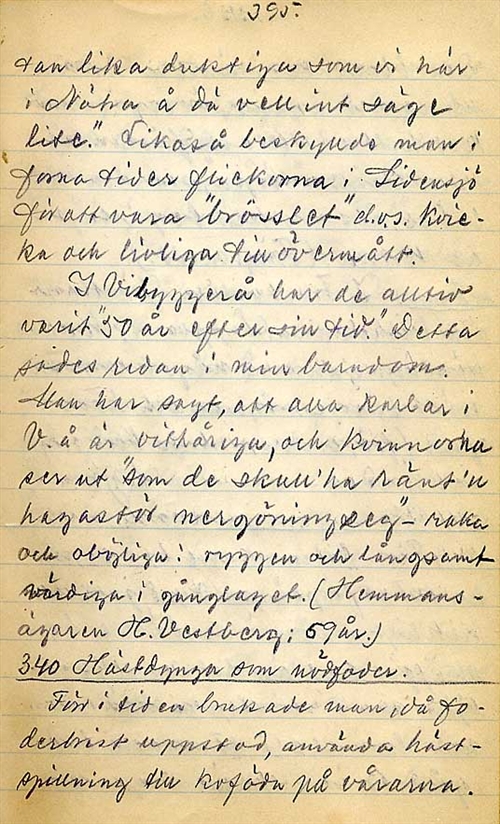 395.
tan lika duktiga som vi här
i Nätra å dä vell int säge
lite." Likaså beskyllde man i
forna tider flickorna i Sidensjö
för att vara "brösslet" d.v.s. kvic-
ka och livliga till övermått.
I Vibyggerå har de alltid
varit "50 år efter sin tid." Detta
sades redan i min barndom.
Man har sagt, att alla karlar i
V. å är vithåriga, och kvinnorna
ser ut "som de skull'ha ränt'n
hagastör nergöning seg" – raka
och oböjliga i ryggen och långsamt
värdiga i gånglaget. (Hemmans-
ägaren H. Vestberg; 69 år.)
340 Hästdynga som nödfoder.
Förr i tiden brukade man, då fo-
derbrist uppstod, använda häst-
spillning till koföda på vårarna.